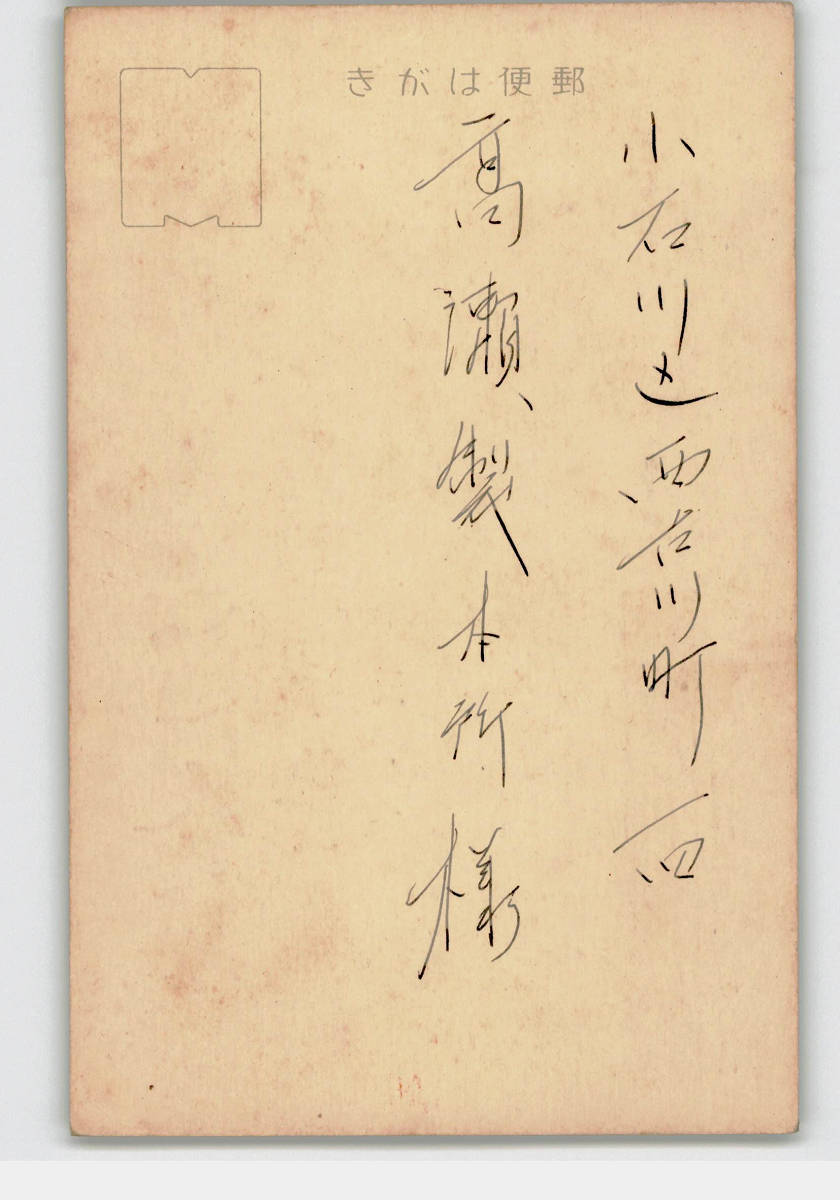 郵便はがき
小石川区西古川町
高瀬製本所様